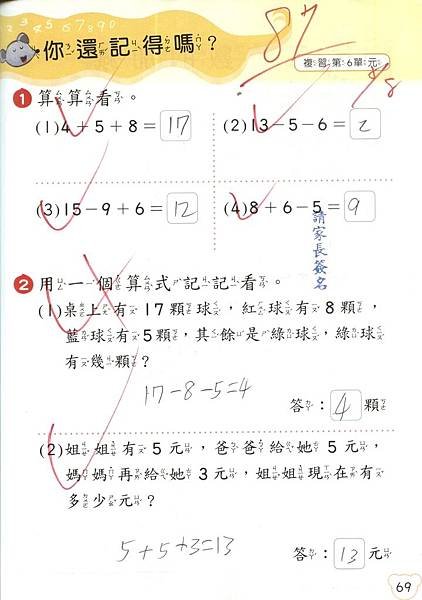 1 2 3 4 5 6 7 8 9 0
你還記得嗎？
87
複習第6單元
4/8
1 算算看。
(1) 4＋5＋8＝17
(2) 13－5－6＝2
(3) 15－9＋6＝12
(4) 8＋6－5＝9
請家長簽名
2 用一個算式記記看。
(1)桌上有17顆球，紅球有8顆，
藍球有5顆，其餘是綠球，綠球
有幾顆？
17-8-5=4
答：4顆
(2)姐姐有5元，爸爸給她5元，
媽媽再給她3元，姐姐現在有
多少元？
5+5+3=13
答：13元
69